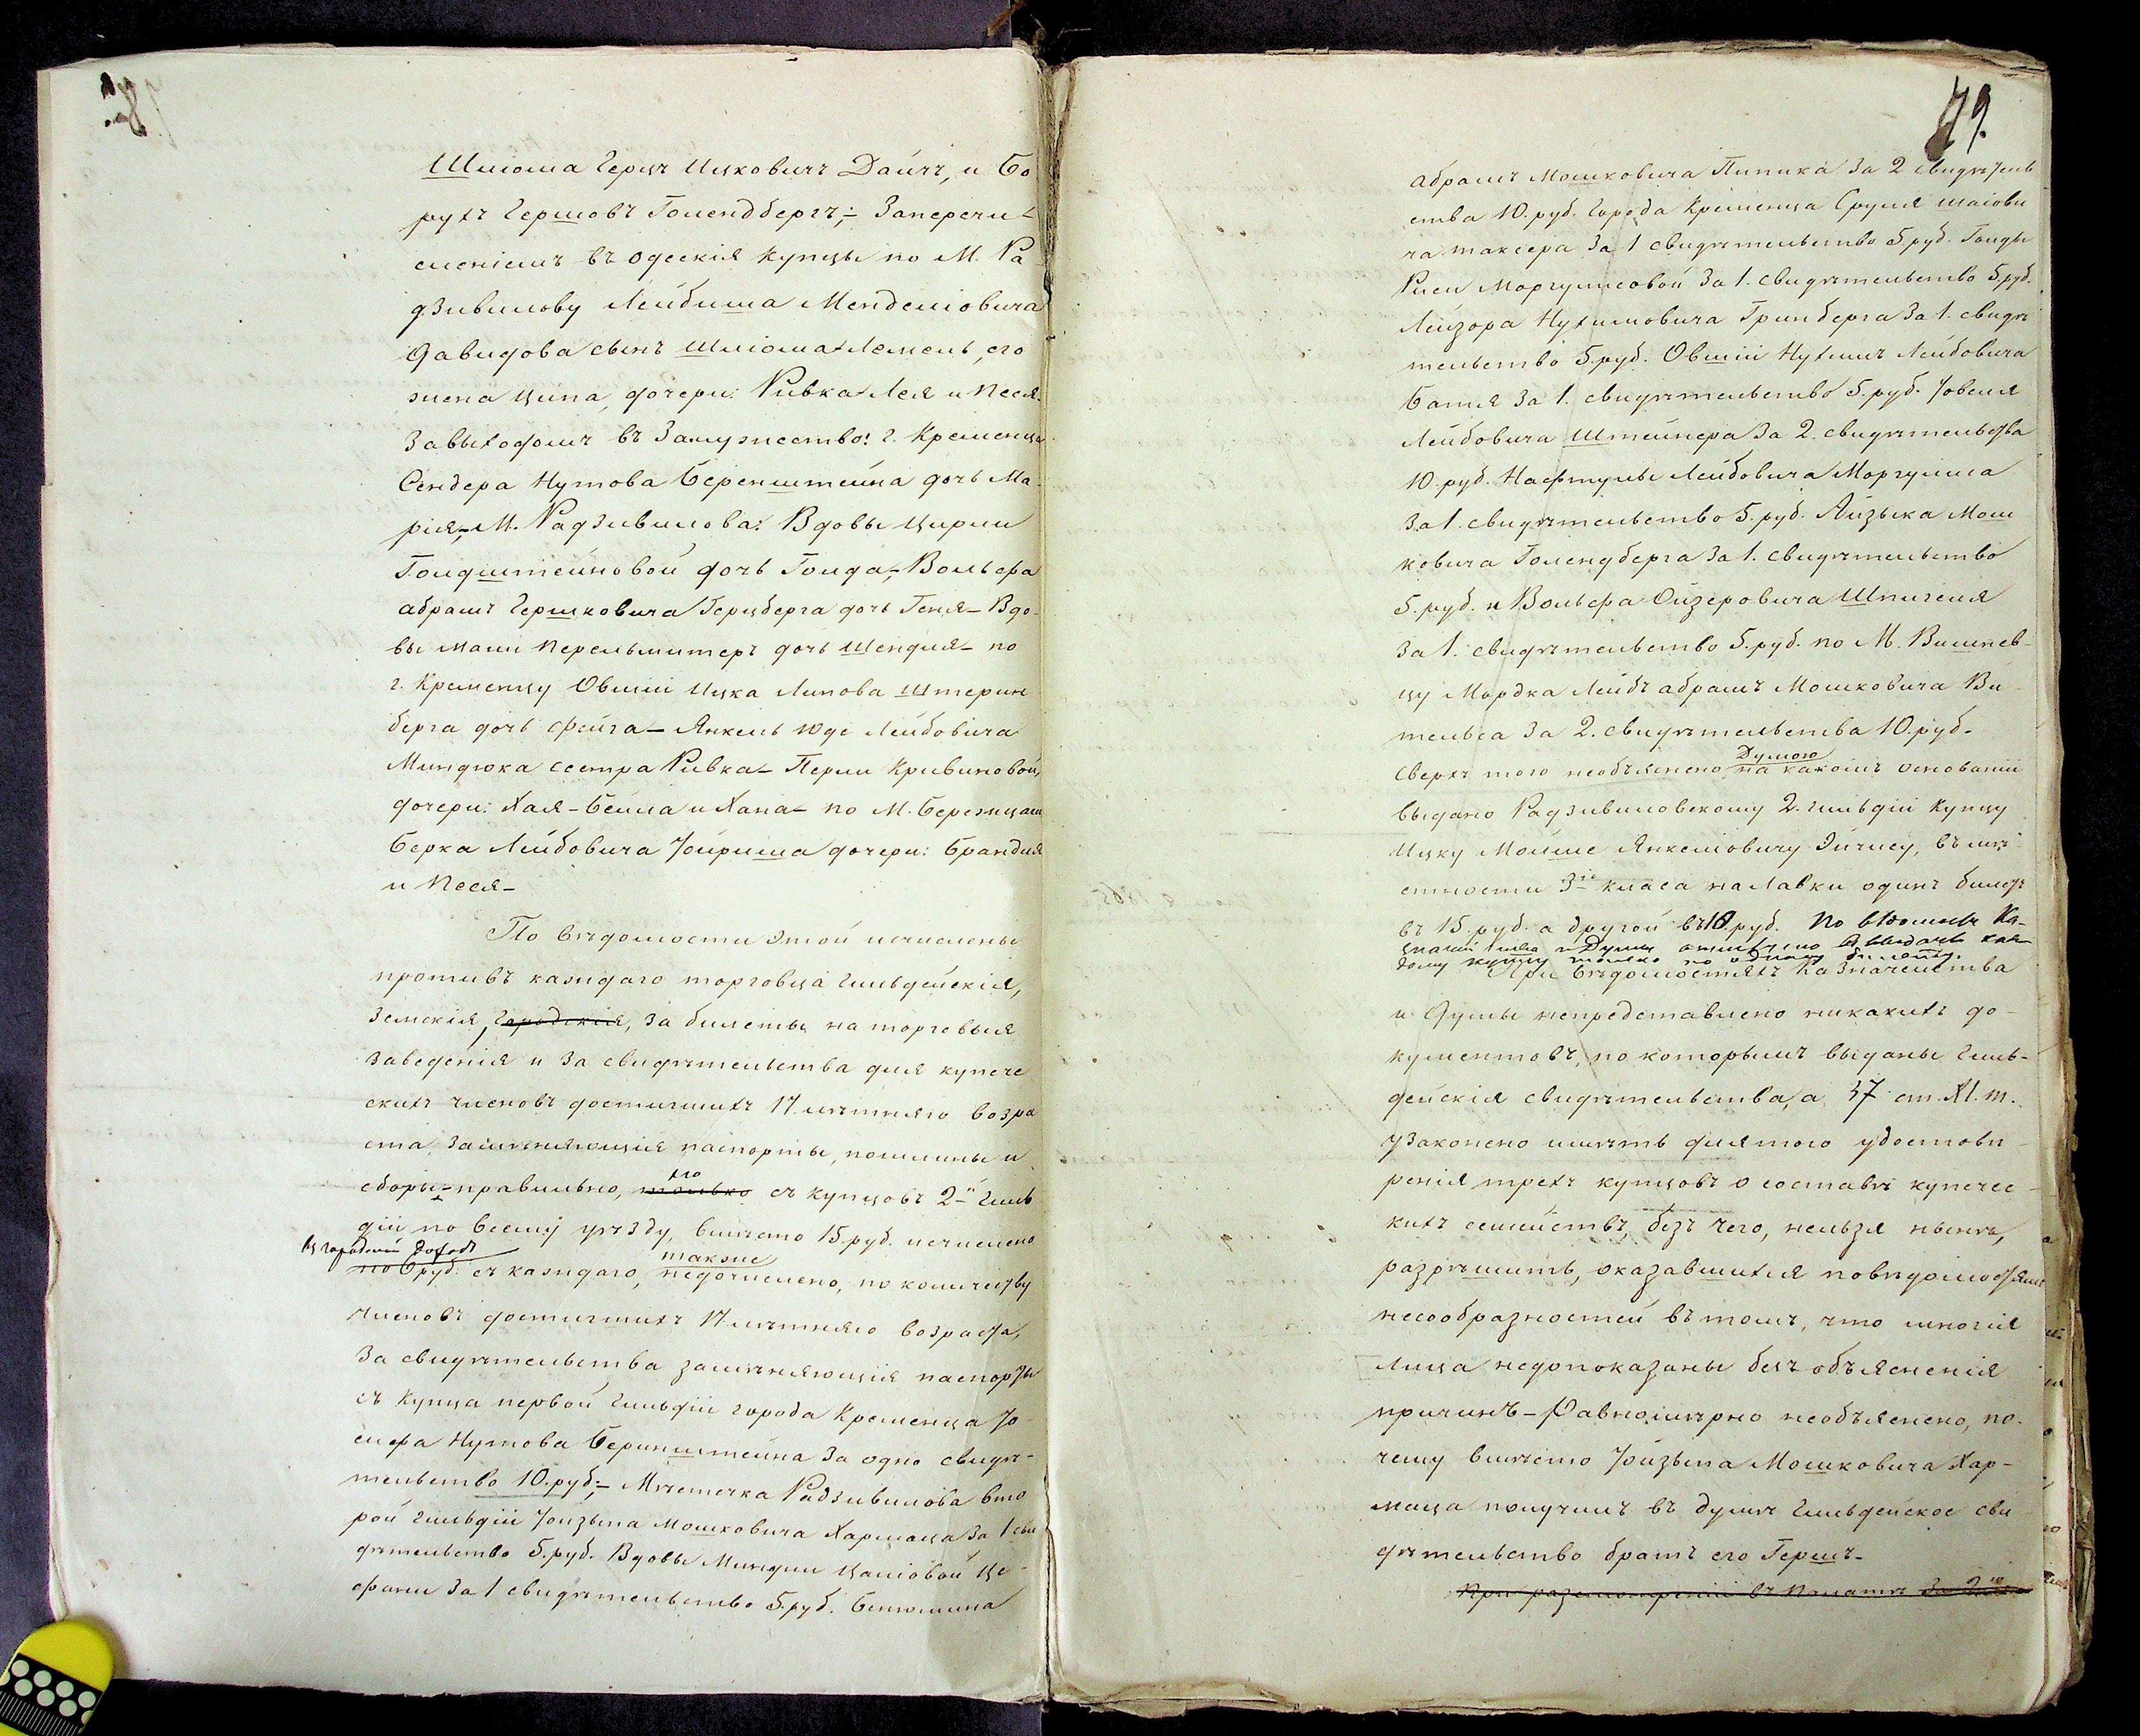 Шліома Герцъ Ицковичъ Дайчъ, и Бо
рухъ Гершовъ Голендбергъ; За перечи-
сленіемъ въ одескія купцы по М. Ра
дзивилову Лейбиша Менделіовича
Давидова сынъ Шліома Лемель, его
жена Ципа, дочери: Ривка Лея и Песя.
За выходомъ въ Замужество: г. Кременца
Сендера Нутова Беренштейна дочь Ма-
рія, М. Радзивилова: Вдовы Цирли
Голдштейновой дочь Голда, Вольфа
абрамъ Гершковича Герцберга дочь Геня – Вдо-
вы Мали Перельмитеръ дочь Шендля – по
г. Кременцу Овшіи Ицка Липова Штерин
берга дочь Фейга – Янкель Юде Лейбовича
Миндюка сестра Ривка – Перли Кривиновой,
дочери: Хая – Бейла и Хана – по М. Бережцам
Берка Лейбовича Іойриша дочери: Брандля
и Песя –
По вѣдомости этой исчислены
противъ каждаго торговца гильдейскія,
Земскія, городскія, за билеты на торговыя
заведенія и за свидѣтельства для купече
скихъ членовъ достигшихъ 17 лѣтняго возра
ста, замѣняющія паспорты, пошлины и
но
сборы – правильно, только съ купцовъ 2й гиль
діи по всему уѣзду, вмѣсто 15 руб. исчислено
Въ городской доходъ
также
по 6 руб. съ каждаго, недочислено, по количеству
членовъ достигшихъ 17 лѣтняго возраста,
За свидѣтельства замѣняющія паспорты
съ купца первой Гильдіи города Кременца Іо
сифа Нутова Беринштейна За одно свидѣ-
тельство 10. руб; – Мѣстечка Радзивилова вто
рой гильдіи Іойзыпа Мошковича Хармаца За 1 сви
дѣтельство 5. руб. Вдовы Миндли Цаліовой Це-
фани За 1 свидѣтельство 5. руб. Беньюмина
79.
абрамъ Мошковича Пипика За 2 свидѣтель
ства 10. руб. города Кременца Сруля Шаіови
ча таксера За 1 свидѣтельство 5 руб. Голды
Риси Моргулисовой За 1. свидѣтельство 5. руб.
Лейзора Нухимовича Гринберга За 1. свидѣ
тельство 5. руб. Овшіи Нухимъ Лейбовича
Батля За 1. свидѣтельство 5. руб. Іовеля
Лейбовича Штейнера За 2. свидѣтельства
10. руб. Нафтулы Лейбовича Моргулиса
За 1. свидѣтельство 5. руб. Айзыка Мош
ковича Голендберга За 1. свидѣтельство
5. руб. и Вольфа Ойзеровича Шпигеля
За 1. свидѣтельство 5. руб. по М. Вишнев-
цу Мордка Лейбъ абрамъ Мошковича Ви
тельса За 2. свидѣтельства 10. руб.
Думою
Сверхъ того необъяснено, на какомъ основаніи
выдано Радзивиловскому 2. гильдіи купцу
Ицку Мойше Янкеліовичу Эйчису, въ мѣ
стности 3го класа на лавки одинъ билетъ
въ 15. руб. а другой въ 10. руб. По вѣдомости Ка-
значейства и Думы отмѣчено о выдачѣ каж
дому купцу только по одному билету.
При вѣдомостяхъ Казначейства
и Думы непредставлено никакихъ до-
кументовъ, по которымъ выданы Гиль-
дейскія свидѣтельства, а 37 ст. XI. т.
узаконено имѣть для того удостовѣ-
ренія трехъ купцовъ о составѣ купечес-
кихъ семействъ, безъ чего, нельзя нынѣ,
разрѣшить, оказавшихся по вѣдомостямъ
несообразностей въ томъ, что многія
лица недопоказаны безъ объясненія
причинъ – Равномѣрно необъяснено, по-
чему вмѣсто Іойзыпа Мошковича Хар-
маца получилъ въ думѣ Гильдейское сви
дѣтельство братъ его Гершъ –
При разсмотрѣніи въ Палатѣ За 2ю